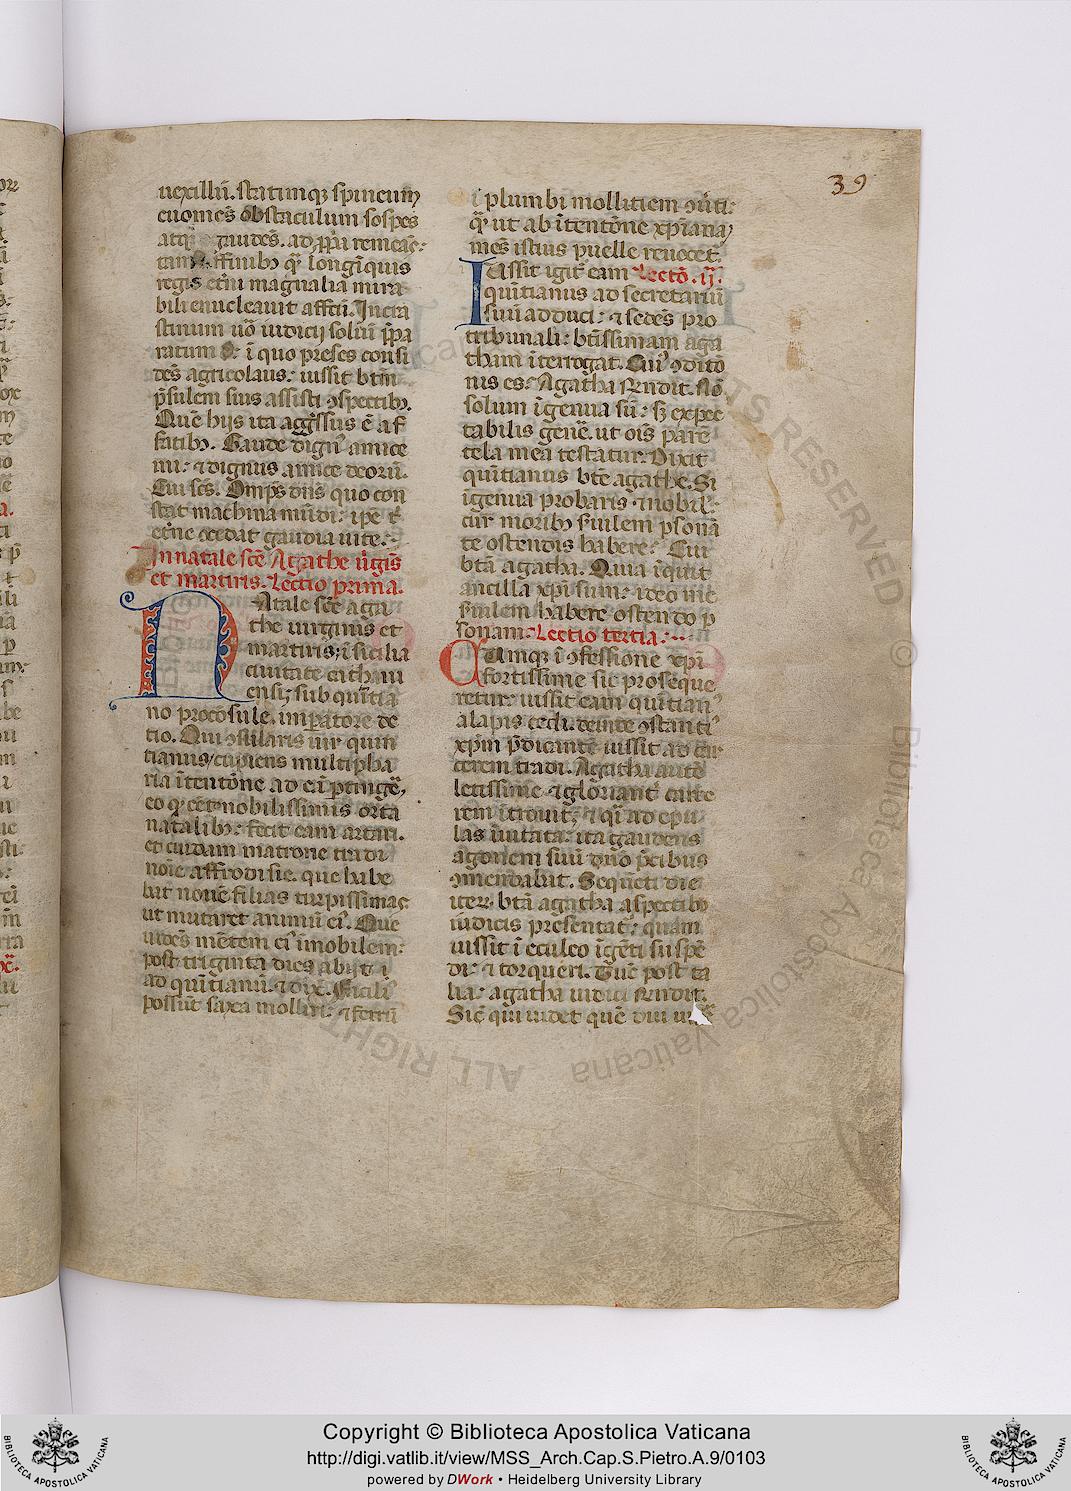 39
uexillũ. statimqз spineum
euomeš obstaculum sospes
atqз gaudeš. ad ꝓpria remeaš:
tam affinibз qͣ longĩquis
regis etni magnalia mira
bili enucleauit affctũ. Incra
stinum uo iudicij soliũ ꝑpa
ratum ĩ quo preses consi
deš agricolaus: iussit btm̃
p̃sulem suis assisti ꝯspectibз.
Quẽ hijs ita aggssus ẽ af
fatibз. Gaude dign amice
mi: ⁊ dignus amice deorũ.
Cui scs̃. Omps̃ dñs quo con
stat machina mũdi: ipe t
gaudia uite:
In natale scẽ Agathe uͥgiš
et martiris. Lectio prima.
Natale scẽ aga
the uirginis et
martiris, ĩ sicilia
ciuitate cathani
ensi; sub quĩtia
no procõsule. imperatore de
tio. Qui ꝯsularis uir quin
tianus, cupiens multipha
ria ĩtentõne ad eã ptinge,
eo qз eet nobilissimis orta
natalibз: fecit eam artari.
et cuidam matrone tradi
noĩe affrodisie. que habe
bat nouẽ filias turpissimas
ut mutaret animũ ei. Que
uideš mẽtem ei imobilem:
post triginta dies abijt
ad quĩtianũ. ⁊ dix. Facili
possũt saxa molliri: ⁊ ferrũ
ĩ plumbi mollitiem ꝯuti:
qͣ ut ab ĩtentõne xp̃iana
meš istius puelle reuocet.
Iussit igit eam Lectõ. ij.
quĩtianus ad secretariũ
suũ adduci: ⁊ sedeš pro
tribunali: btĩssimam aga
tham ĩterrogat. Cui ꝯditõ
nis es: Agatha rñdit. Nõ
solum ĩgenua sũ: sз expec
tabilis geñe. ut oĩs parẽ
tela mea testatur. Dixit
quĩtianus btẽ agathe. Si
ĩgenua probaris ⁊ nobil:
cur moribз s̃uilem psonã
te ostendis habere: Cui
btã agatha. Quia ĩquit
ancilla xp̃i sum: ideo me
s̃uilem habere ostendo p
sonam: Lectio tertia:
Cumqз ĩ ꝯfessione xp̃i
fortissime sic proseque
retur: iussit eam quĩtian
alapis cedi. deinde ꝯstanti
xp̃m p̃dicantẽ iussit ad car
cerem tradi. Agatha autẽ
letissime ⁊ glorianť carce
rem ĩtrouit, ⁊ qͣ ad epu
las ĩuitata: ita gaudens
agonem suũ dño p̃cibus
ꝯmendabat. Sequẽti die
iter btã agatha aspectibз
iudicis presentat: quam
iussit ĩ eculeo ĩgẽti suspẽ
di: ⁊ torqueri. Tũc post ta
lia: agatha iudici rñdit.
Sic qui uidet quẽ diu
Copyright © Biblioteca Apostolica Vaticana
http://digi.vatlib.it/view/MSS_Arch.Cap.S.Pietro.A.9/0103
powered by DWork • Heidelberg University Library
BIBLIOTECA APOSTOLICA VATICANA
BIBLIOTECA APOSTOLICA VATICANA